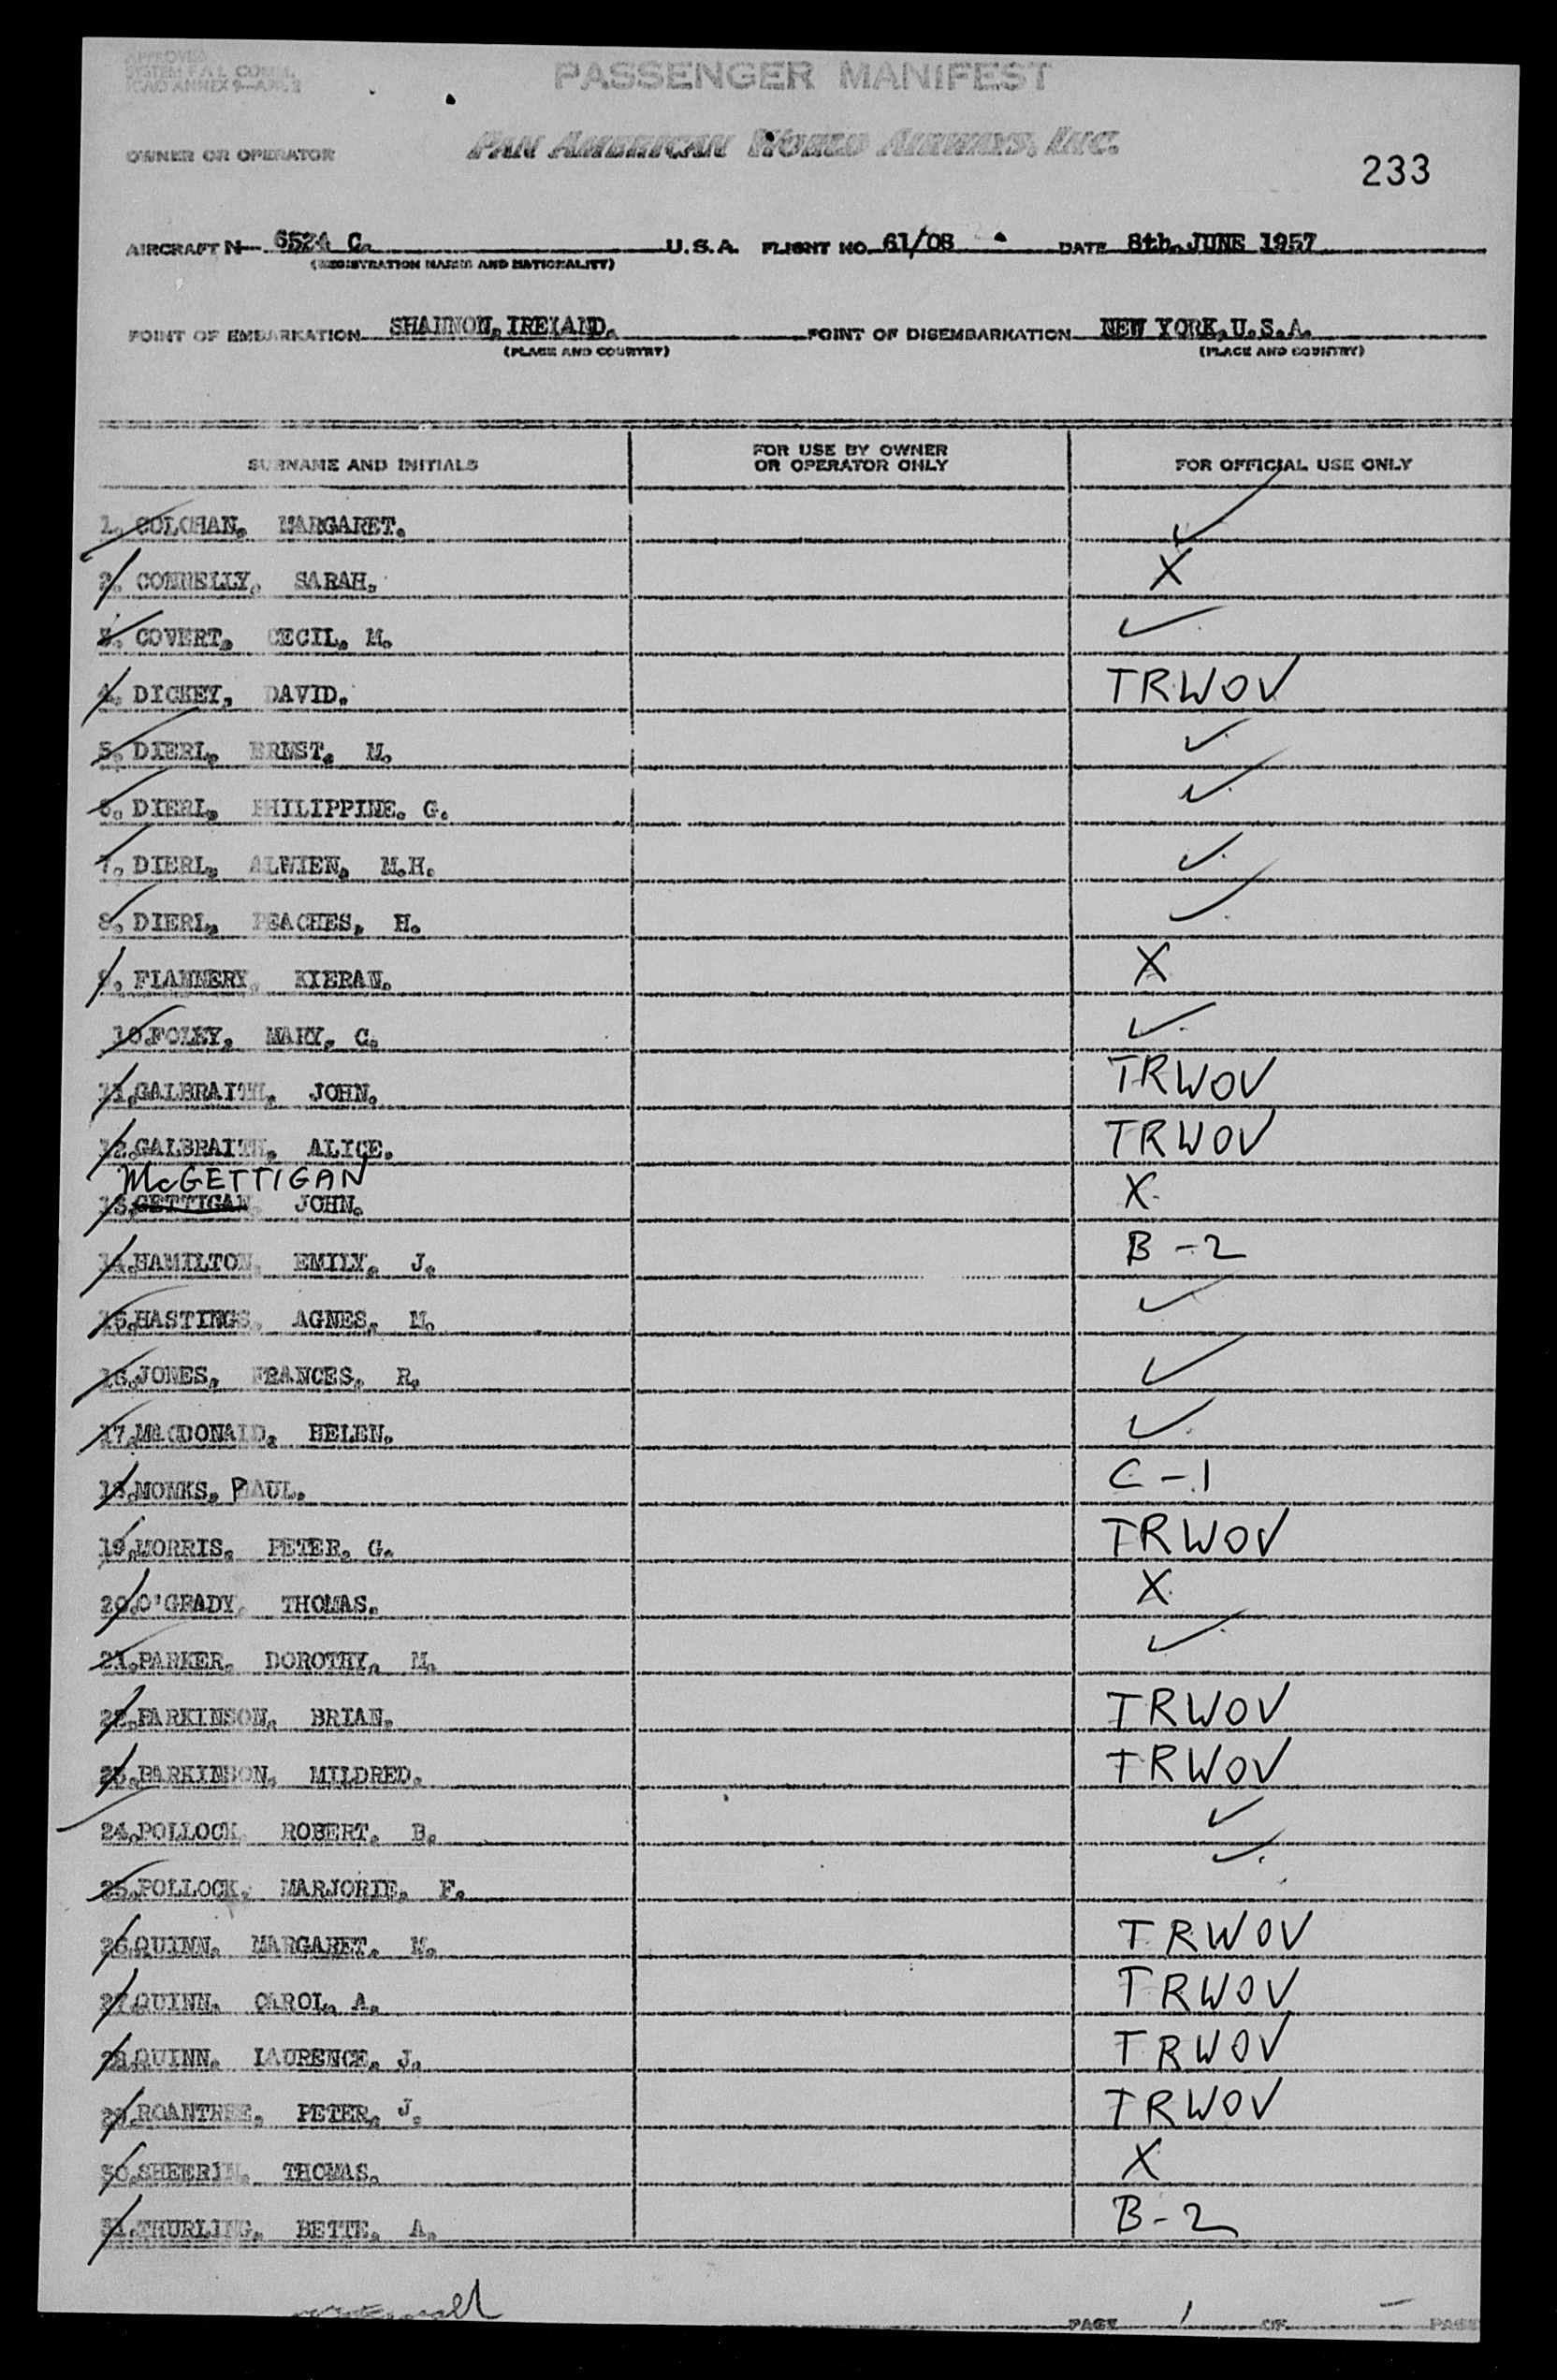 APPROVED
SYSTEM F.A.L. COMM.
ICAO ANNEX 9—APP. 2
PASSENGER MANIFEST
OWNER OR OPERATOR PAN AMERICAN WORLD AIRWAYS, INC.
233
AIRCRAFT N— 6524 C. U.S.A. FLIGHT NO. 61/08 DATE 8th. JUNE 1957
(REGISTRATION MARKS AND NATIONALITY)
POINT OF EMBARKATION SHANNON, IRELAND. POINT OF DISEMBARKATION NEW YORK, U.S.A.
(PLACE AND COUNTRY) (PLACE AND COUNTRY)
SURNAME AND INITIALS FOR USE BY OWNER OR OPERATOR ONLY FOR OFFICIAL USE ONLY
1. COLOHAN, MARGARET. ✓
2. CONNELLY, SARAH. X
3. COVERT, CECIL, M. ✓
4. DICKEY, DAVID. TRWOV
5. DIERL, ERNST, M. ✓
6. DIERL, PHILIPPINE. G. ✓
7. DIERL, ALWIEN, M.H. ✓
8. DIERL, PEACHES, H. ✓
9. FLANNERY, KIERAN. X
10. FOLEY, MARY, C. ✓
11. GALBRAITH, JOHN. TRWOV
12. GALBRAITH, ALICE. TRWOV
McGETTIGAN
13. GETTIGAN, JOHN. X
14. HAMILTON, EMILY, J. B-2
15. HASTINGS, AGNES, M. ✓
16. JONES, FRANCES, R. ✓
17. MacDONALD, HELEN. ✓
18. MONKS, PAUL. C-1
19. MORRIS, PETER, G. TRWOV
20. O'GRADY, THOMAS. X
21. PARKER, DOROTHY, M. ✓
22. PARKINSON, BRIAN. TRWOV
23. PARKINSON, MILDRED. TRWOV
24. POLLOCK, ROBERT. B. ✓
25. POLLOCK, MARJORIE, F. ✓
26. QUINN, MARGARET. M. TRWOV
27. QUINN, CAROL, A. TRWOV
28. QUINN, LAURENCE, J. TRWOV
29. ROANTREE, PETER, J. TRWOV
30. SHEERIN, THOMAS. X
31. THURLING, BETTE, A. B-2
PAGE 1 OF